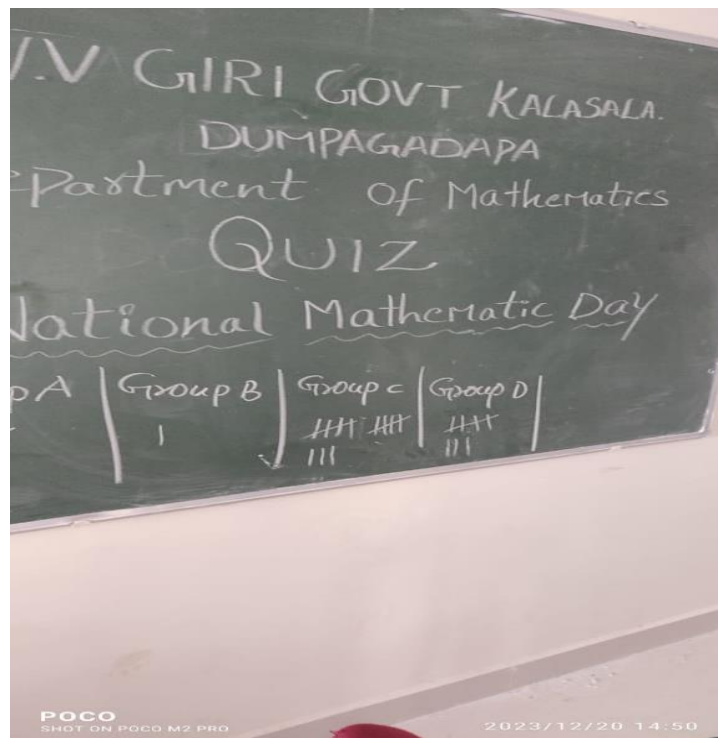 V.V GIRI GOVT KALASALA.
DUMPAGADAPA
epartment of Mathematics
QUIZ
National Mathematic Day
pA | Group B | Group C | Group D |
| 卌 卌 卌
||| |||
POCO
SHOT ON POCO M2 PRO
2023/12/20 14:50